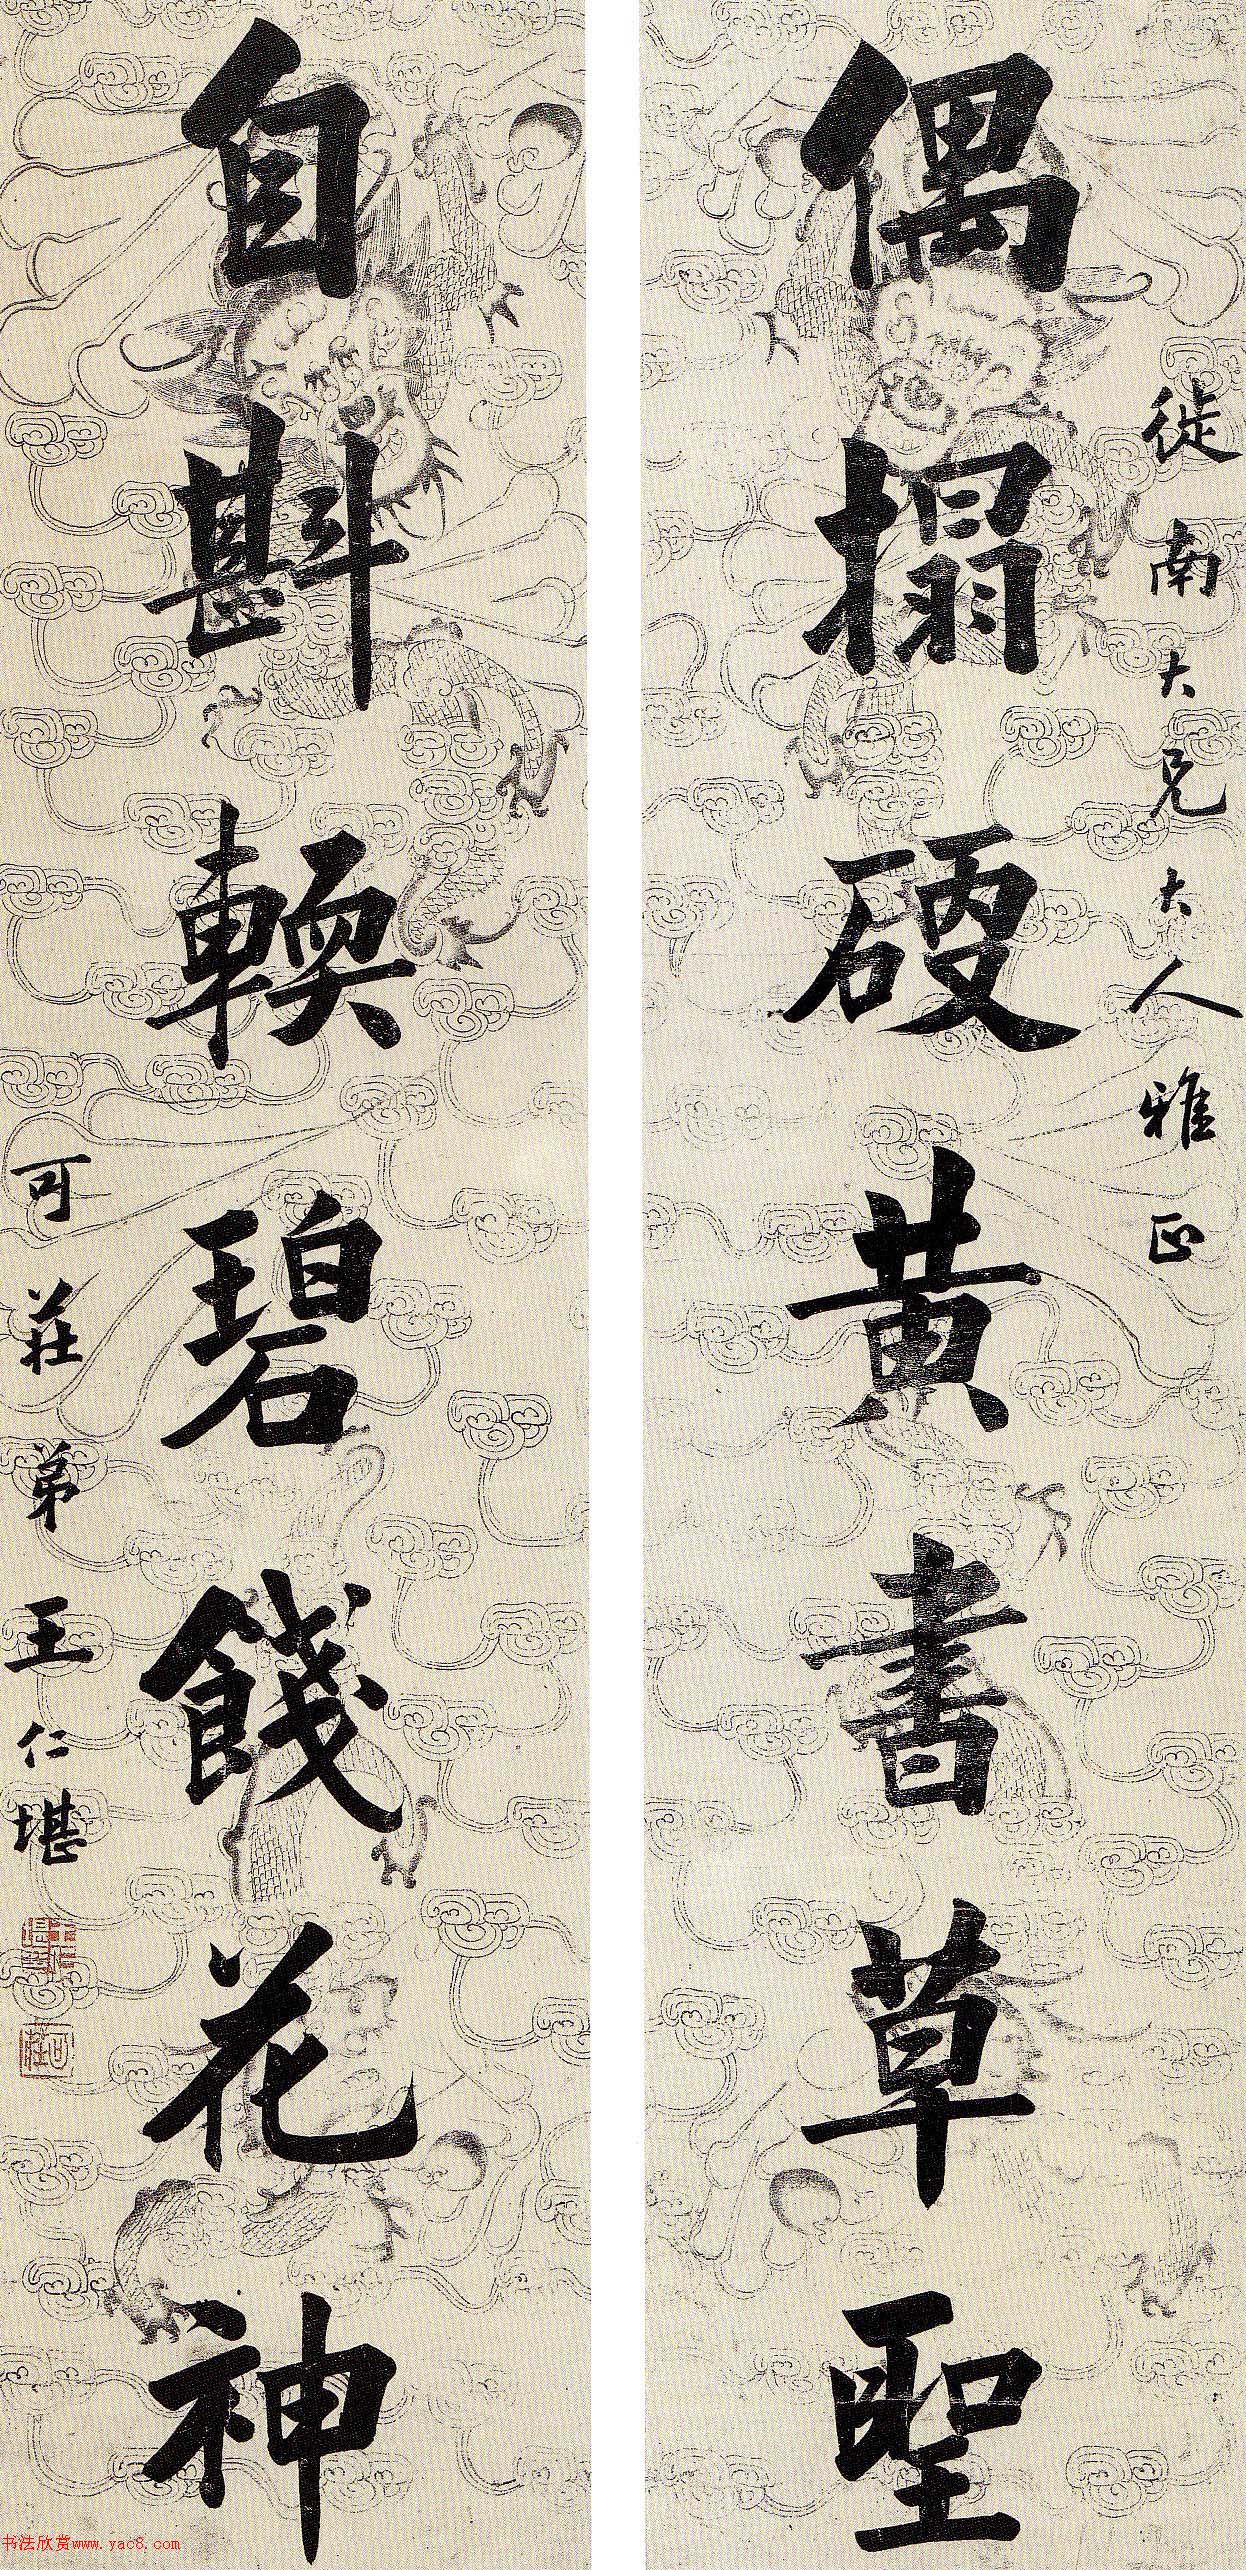 徙南大兄大人雅正
偶搨硬黄書草聖
自斟輭碧餞花神
可莊弟王仁堪
可莊
书法欣赏www.yac8.com